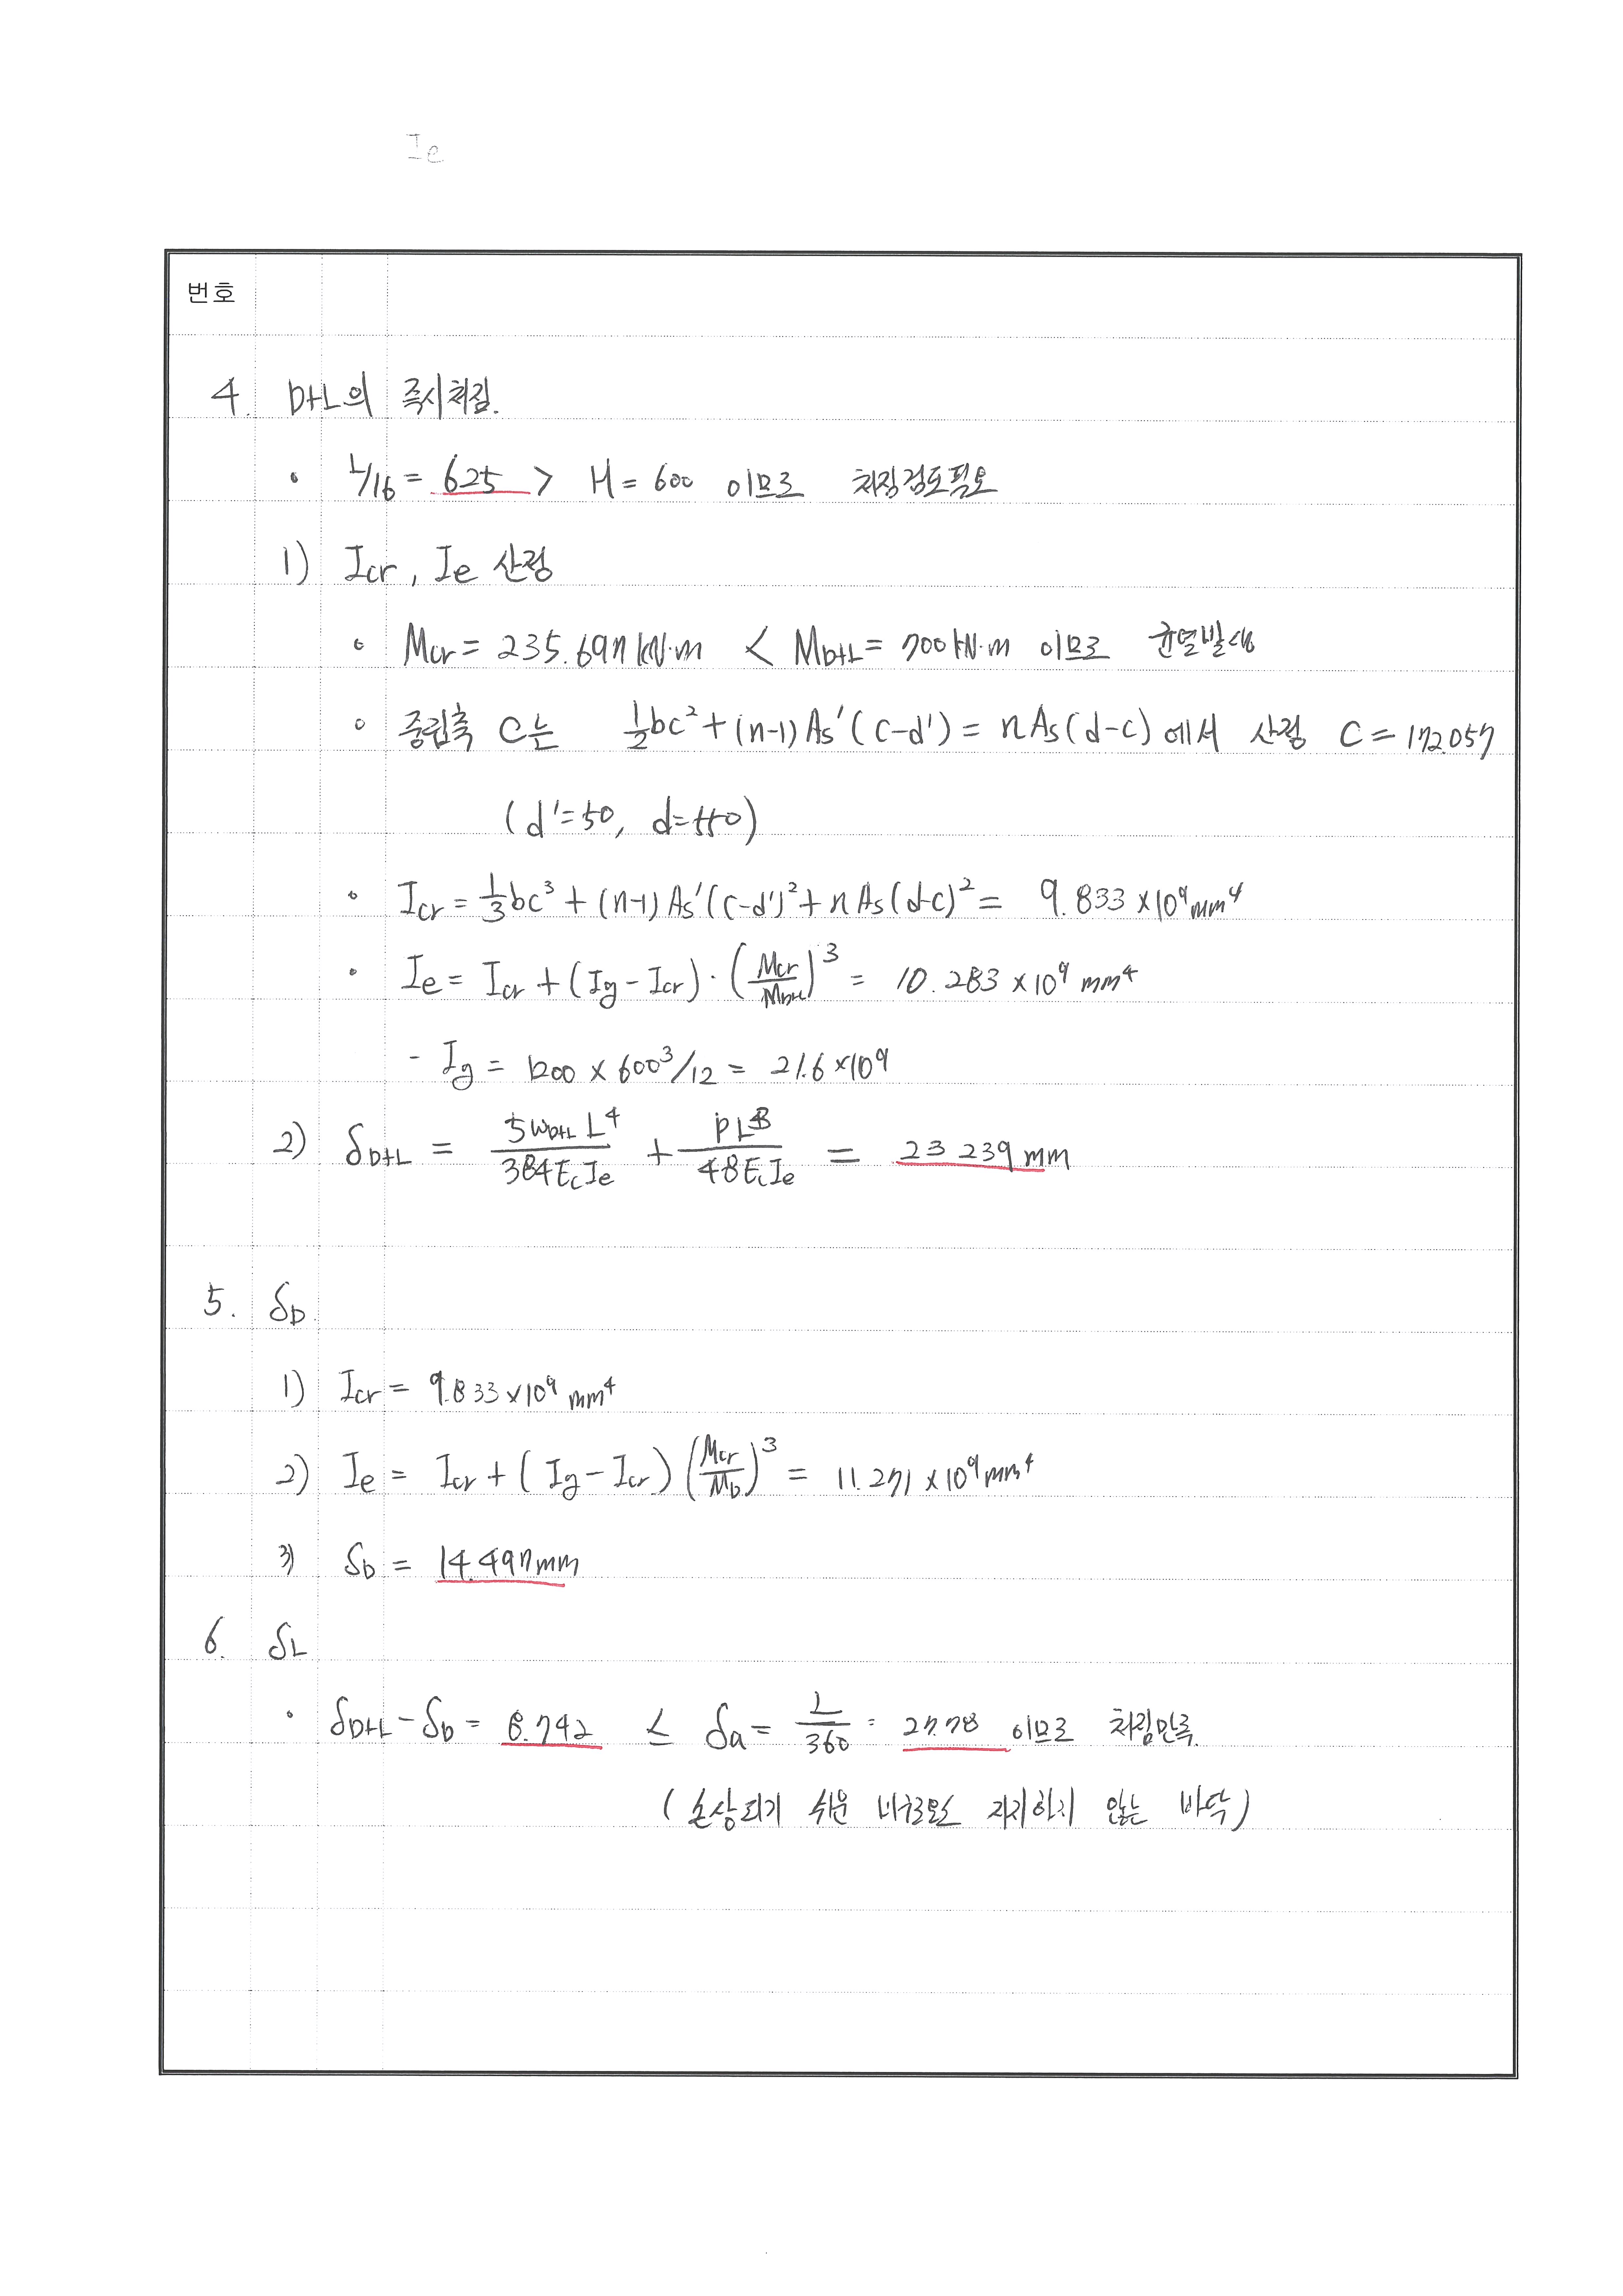 Ie
번호
4. D+L의 즉시처짐.
· L/16 = 625 > H = 600 이므로 처짐검토필요
1) Icr, Ie 산정
∘ Mcr = 235.697 kN·m < MD+L = 700 kN·m 이므로 균열발생
∘ 중립축 C는 1/2bc² + (n-1)As'(c-d') = nAs(d-c) 에서 산정 C = 172.057
(d'=50, d=550)
∘ Icr = 1/3bc³ + (n-1)As'(c-d')² + nAs(d-c)² = 9.833 × 10⁹ mm⁴
∘ Ie = Icr + (Ig - Icr)·(Mcr/MD+L)³ = 10.283 × 10⁹ mm⁴
- Ig = 1200 × 600³/12 = 21.6 × 10⁹
2) δD+L = 5wD+L L⁴/384EcIe + PL³/48EcIe = 23.239 mm
5. δD.
1) Icr = 9.833 × 10⁹ mm⁴
2) Ie = Icr + (Ig - Icr)(Mcr/MD)³ = 11.271 × 10⁹ mm⁴
3) δD = 14.497 mm
6. δL
· δD+L - δD = 8.742 ≤ δa = L/360 = 27.78 이므로 처짐만족.
(손상되기 쉬운 비구조요소 지지하지 않는 바닥)